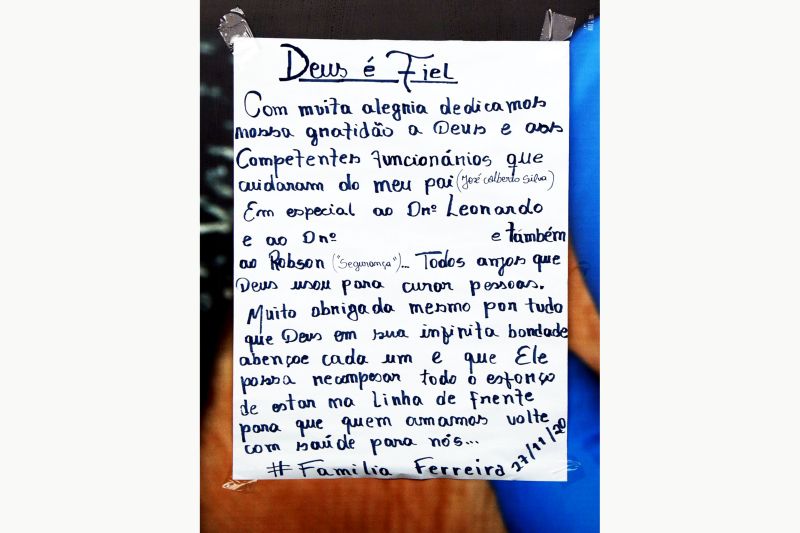 Deus é Fiel
Com muita alegria dedicamos
nossa gratidão a Deus e aos
Competentes Funcionários que
cuidaram do meu pai (José Alberto Silva)
Em especial ao Drº Leonardo
e ao Drº e também
ao Robson ("Segurança")... Todos anjos que
Deus usou para curar pessoas.
Muito obrigada mesmo por tudo
que Deus em sua infinita bondade
abençoe cada um e que Ele
possa recompesar todo o esforço
de estar na linha de frente
para que quem amamos volte
com saúde para nós...
# Familia Ferreira 27/11/20